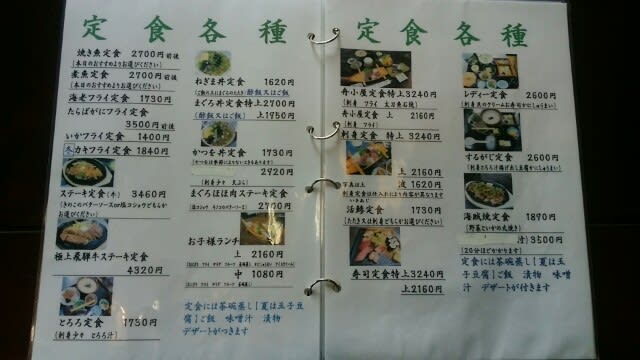 定食各種
焼き魚定食 2700円前後
(本日のおすすめよりお選びください)
煮魚定食 2700円前後
(本日のおすすめよりお選びください)
海老フライ定食 1730円
たらばがにフライ定食
3500円前後
いかフライ定食 1400円
冬カキフライ定食 1840円
ステーキ定食(牛) 3460円
(きのこのバターソースor塩コショウどちらか
お選びください)
極上飛騨牛ステーキ定食
4320円
とろろ定食 1730円
(刺身少々 とろろ汁)
ねぎま丼定食 1620円
まぐろ丼定食特上2700円
(酢飯又はご飯) 上1750円
かつを丼定食 1730円
2720円
(刺身少々 天ぷら)
まぐろほほ肉ステーキ定食
2700円
お子様ランチ
上 2160円
中 1080円
定食には茶碗蒸し【夏は玉子豆
腐】ご飯 味噌汁 漬物
デザートがつきます
定食各種
舟小屋定食特上3240円
舟小屋定食 上 2160円
(刺身 フライ)
刺身定食 特上 3240円
上 2160円
写真は上 波 1620円
活鯵定食 1730円
寿司定食特上3240円
上2160円
レディー定食 2600円
するがじ定食 2600円
海賊焼定食 1870円
汁)3500円
(20分ほどかかります)
定食には茶碗蒸し【夏は玉子
豆腐】ご飯 漬物 味噌
汁 デザートが付きます